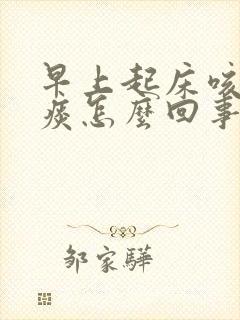 早上起床咳
痰怎麼回事
邹家驊